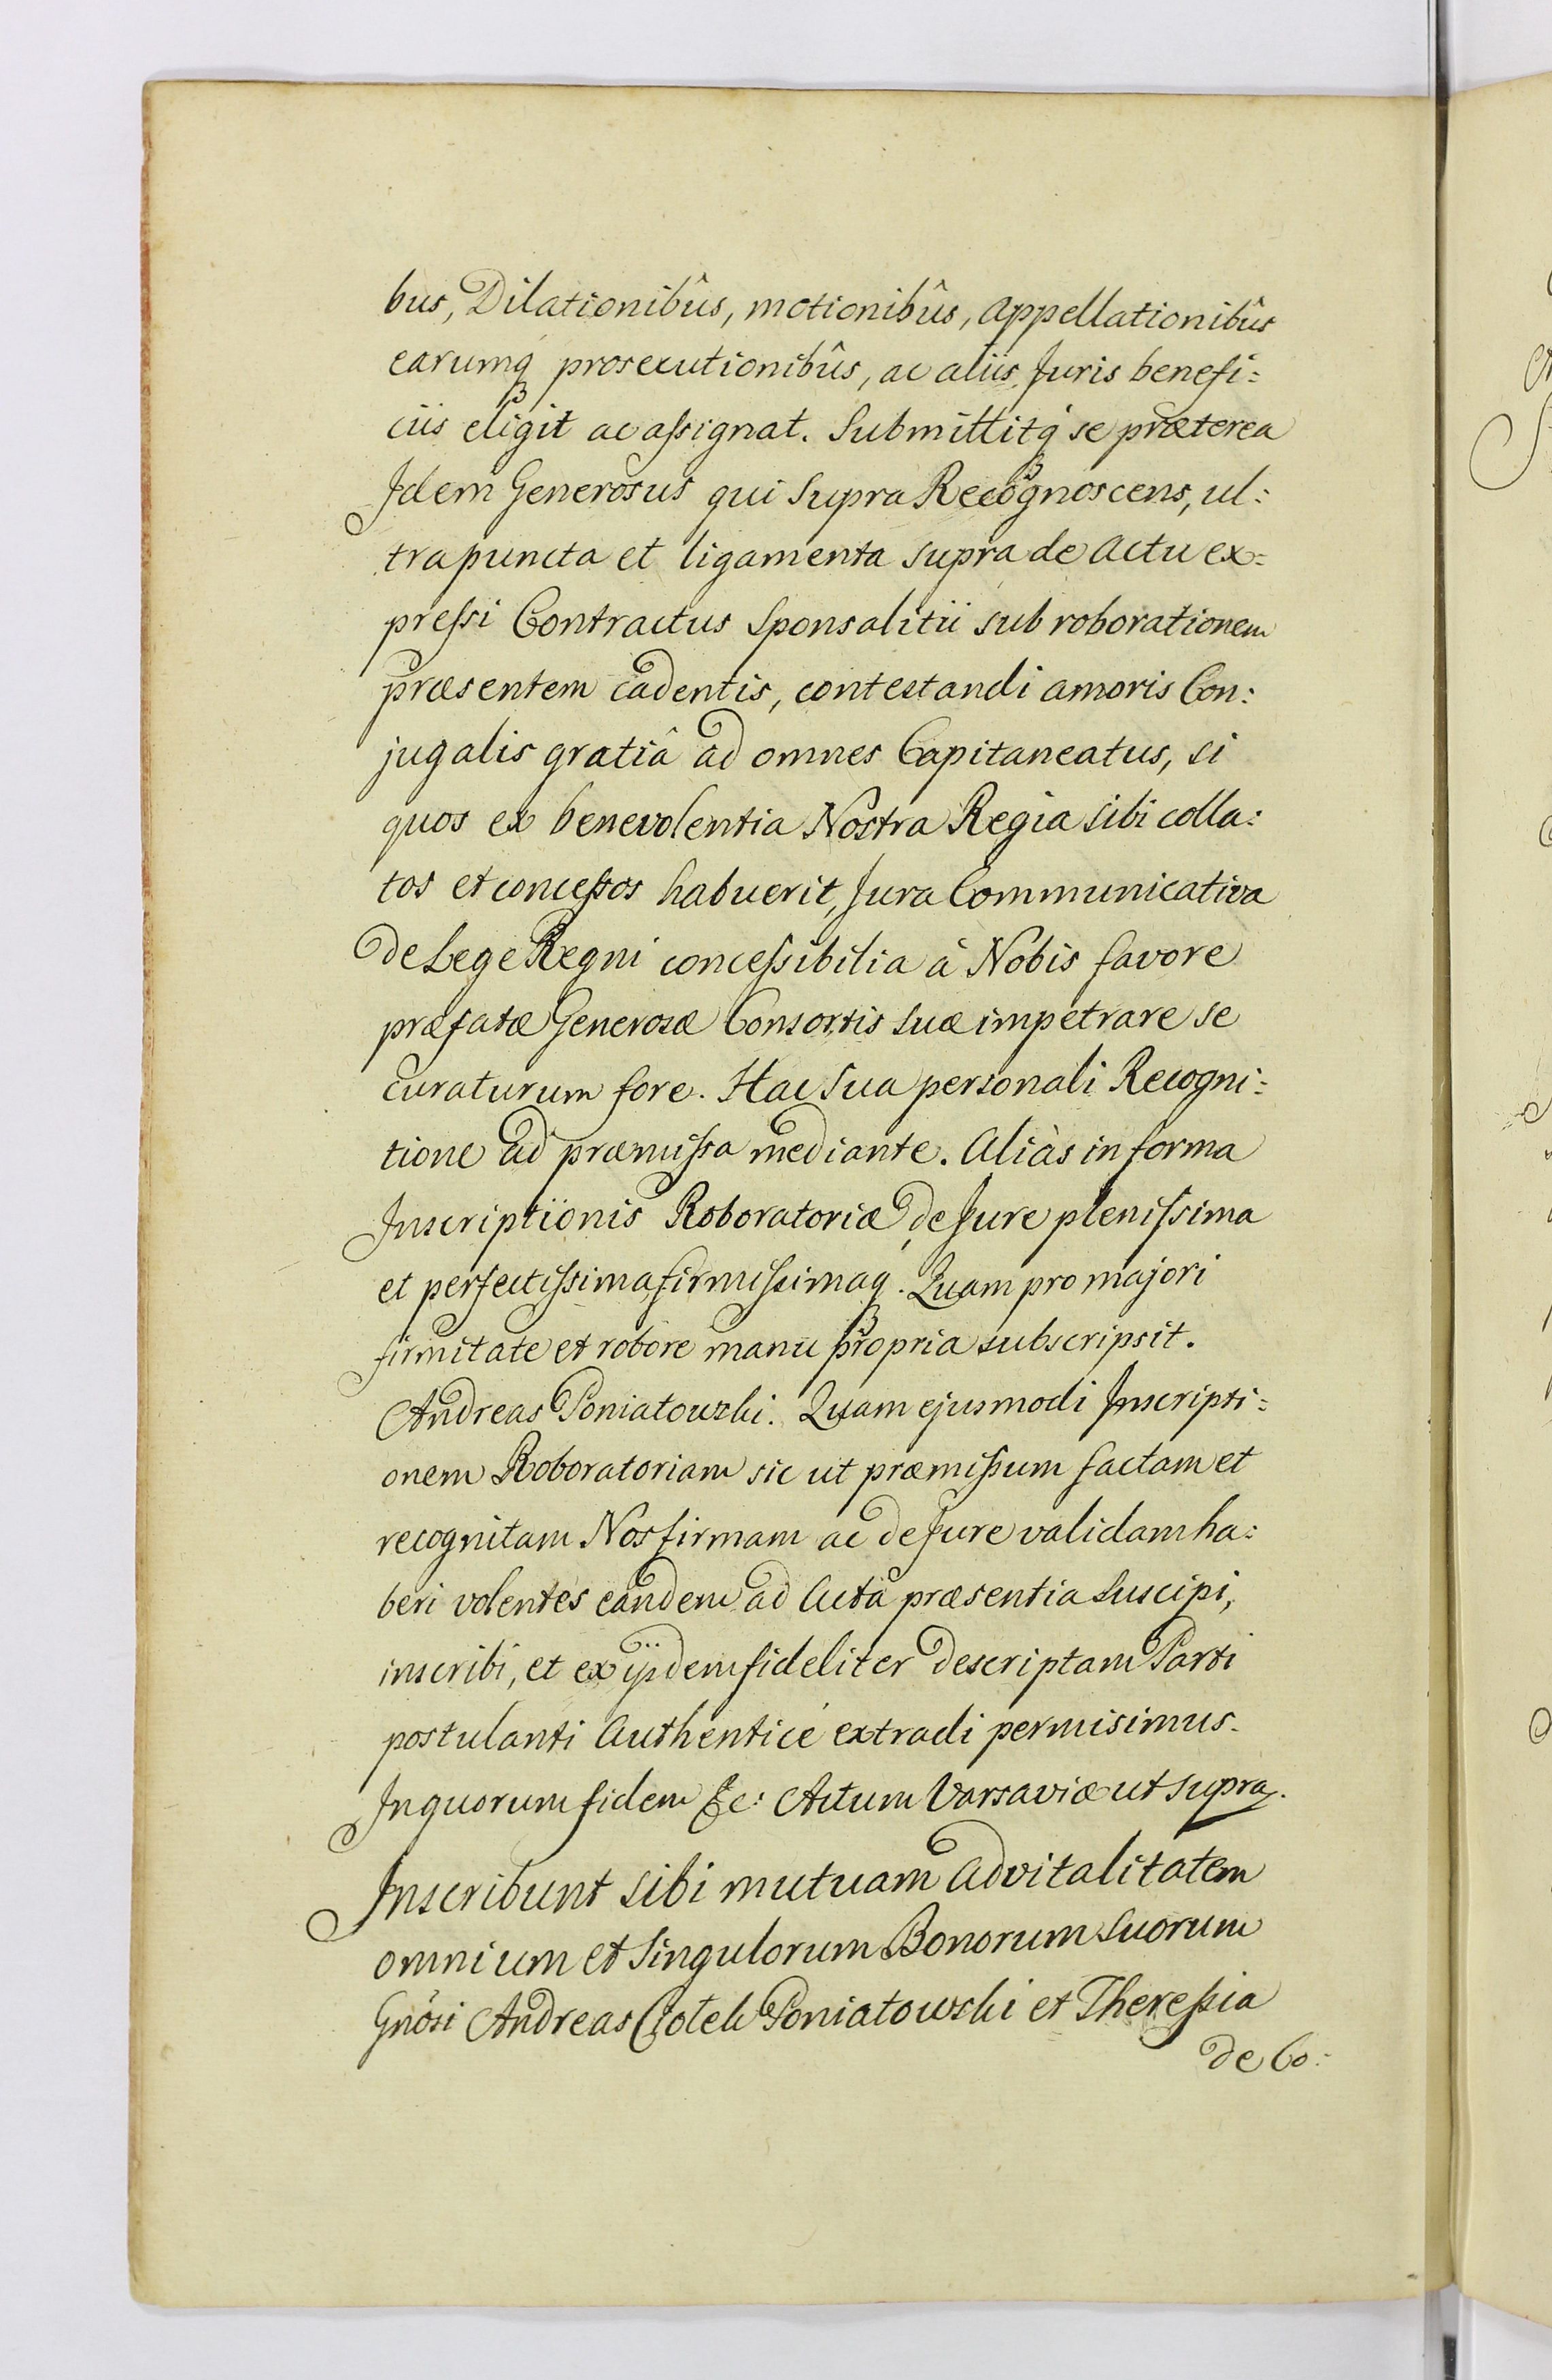 bus, Dilationibûs, motionibûs, Appellationibûs
earumq prosecutionibûs, ac aliis Juris benefi:
ciis eligit ac assignat. Submittitq se præterea
Idem Generosus qui supra Recognoscens, ul:
tra puncta et ligamenta supra de Actu ex:
pressi Contractus Sponsalitii sub roborationem
præsentem cadentis, contestandi amoris Con:
jugalis gratiâ ad omnes Capitaneatus, si
quos ex benevolentia Nostra Regia sibi colla:
tos et concessos habuerit, Jura Communicativa
de Lege Regni concessibilia à Nobis favore
præfatæ Generosæ Consortis suæ impetrare se
curaturum fore. Hac sua personali Recogni:
tione ad præmissa mediante. Aliàs in forma
Inscriptionis Roboratoriæ, de Jure plenissima
et perfectissima firmissimaq. Quam pro majori
firmitate et robore manu propria subscripsit.
Andreas Poniatowski. Quam ejusmodi Inscripti:
onem Roboratoriam sic ut præmissum factam et
recognitam Nos firmam ac de Jure validam ha:
beri volentes eandem ad Acta præsentia suscipi,
inscribi, et ex ijsdem fideliter descriptam Parti
postulanti Authenticé extradi permisimus.
In quorum fidem &c: Actum Varsaviæ ut supra.
Inscribunt sibi mutuam Advitalitatem
omnium et singulorum Bonorum suorum
Gnôsi Andreas Ciolek Poniatowski et Theressia
de Co: